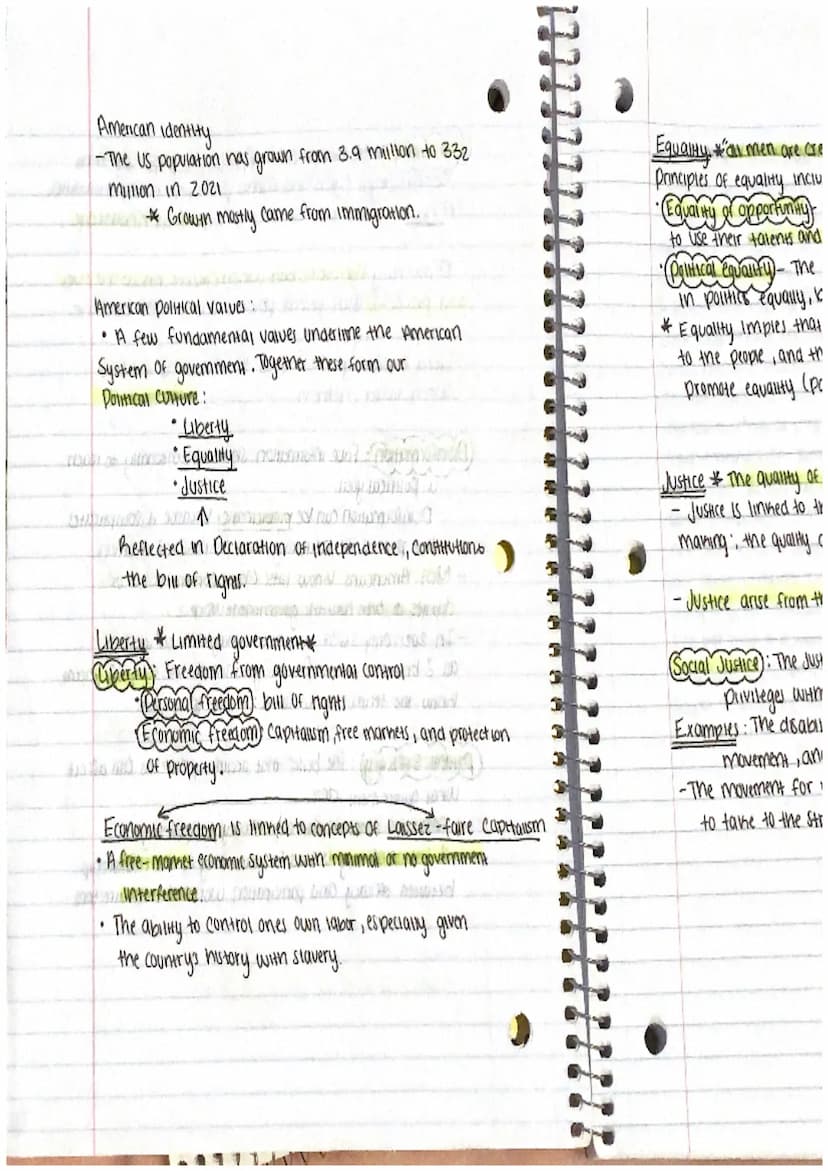 American identity
-The US population has grown from 3.9 million to 332
million in 2021
* Growth mostly came from immigration.
American political values:
• A few fundamental values underline the American
System of government. Together these form our
Political Culture:
• Liberty
• Equality
• Justice
↑
Reflected in Declaration of independence, Constitutions
the bill of rights.
Liberty * Limited government*
Liberty: Freedom from governmental control
• Personal freedom: bill of rights
Economic freedom: Capitalism, free markets, and protection
of property.
Economic freedom is linked to concepts of Laissez-faire Capitalism
• A free-market economic system with minimal or no government
interference.
• The ability to control ones own labor, especially given
the country's history with slavery.
Equality *"all men are cre
Principles of equality inclu
• Equality of opportunity-
to use their talents and
• Political equality- The
in politics equally, b
* Equality implies that
to the people, and th
promote equality (po
Justice * The quality of
- Justice is linked to th
making; the quality o
- Justice arise from th
Social Justice: The Just
privileges with
Examples: The disabil
movement, an
-The movement for
to take to the str